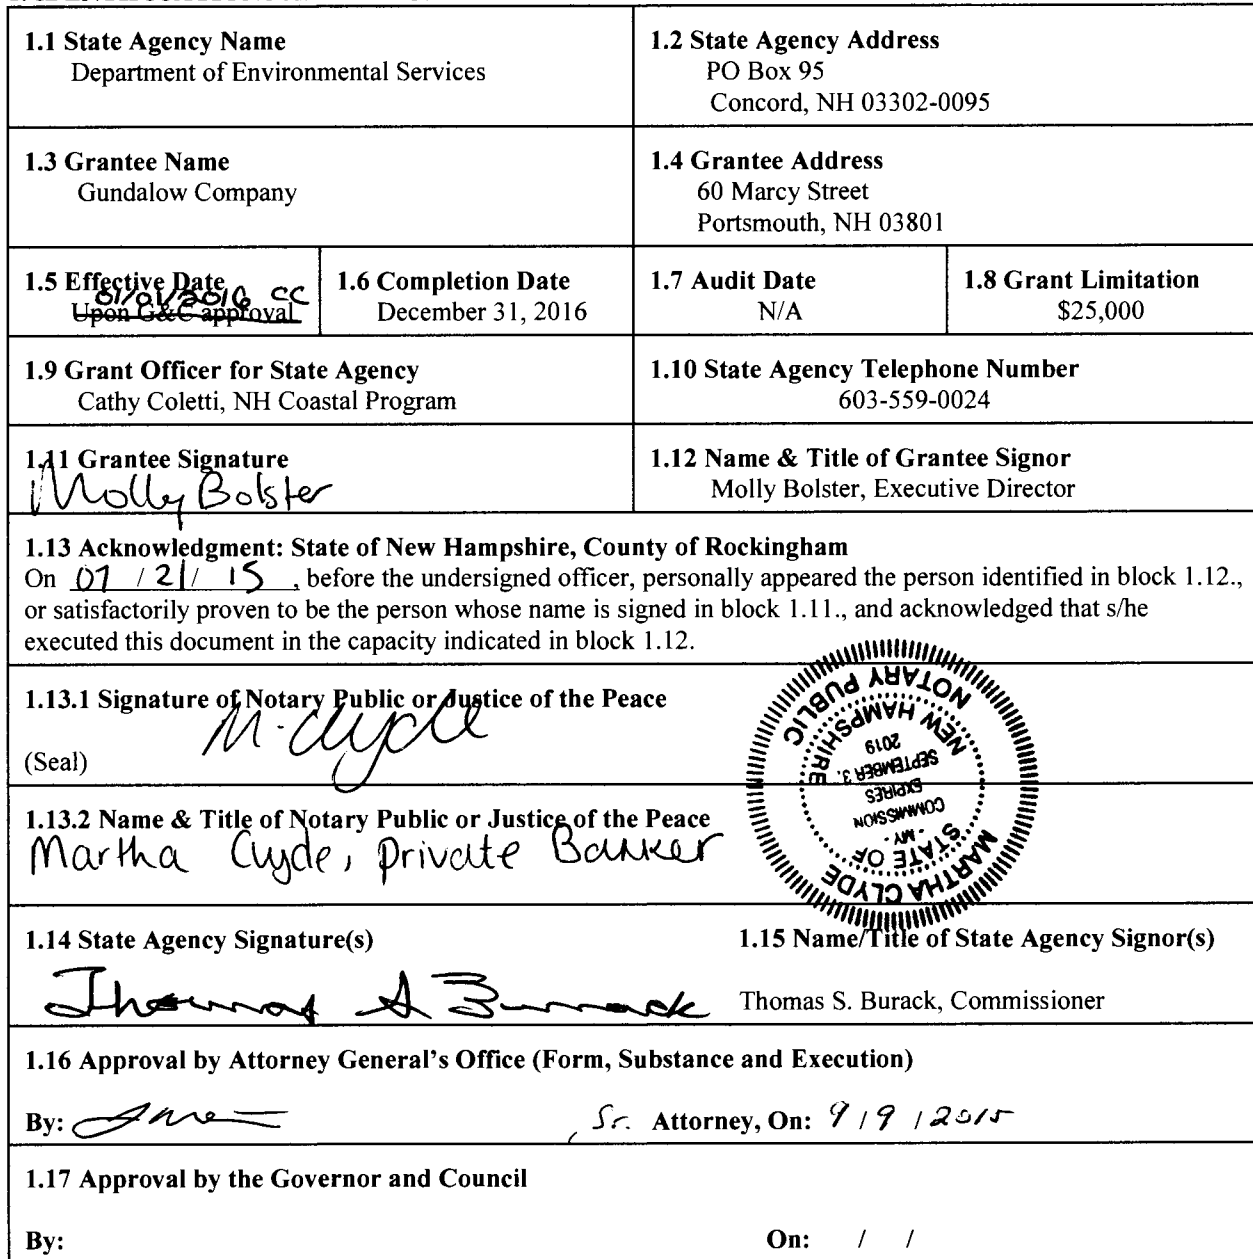 1.1 State Agency Name
Department of Environmental Services
1.2 State Agency Address
PO Box 95
Concord, NH 03302-0095
1.3 Grantee Name
Gundalow Company
1.4 Grantee Address
60 Marcy Street
Portsmouth, NH 03801
1.5 Effective Date
01/01/2016 CC
Upon G&C approval
1.6 Completion Date
December 31, 2016
1.7 Audit Date
N/A
1.8 Grant Limitation
$25,000
1.9 Grant Officer for State Agency
Cathy Coletti, NH Coastal Program
1.10 State Agency Telephone Number
603-559-0024
1.11 Grantee Signature
Molly Bolster
1.12 Name & Title of Grantee Signor
Molly Bolster, Executive Director
1.13 Acknowledgment: State of New Hampshire, County of Rockingham
On 07 / 21 / 15 , before the undersigned officer, personally appeared the person identified in block 1.12.,
or satisfactorily proven to be the person whose name is signed in block 1.11., and acknowledged that s/he
executed this document in the capacity indicated in block 1.12.
1.13.1 Signature of Notary Public or Justice of the Peace
M. Clyde
(Seal)
MARTHA CLYDE
NOTARY PUBLIC
STATE OF
NEW HAMPSHIRE
- MY -
COMMISSION
EXPIRES
SEPTEMBER 3,
2019
1.13.2 Name & Title of Notary Public or Justice of the Peace
Martha Clyde, private Banker
1.14 State Agency Signature(s)
Thomas S Burack
1.15 Name/Title of State Agency Signor(s)
Thomas S. Burack, Commissioner
1.16 Approval by Attorney General's Office (Form, Substance and Execution)
By: , Sr. Attorney, On: 9 / 9 / 2015
1.17 Approval by the Governor and Council
By: On: / /